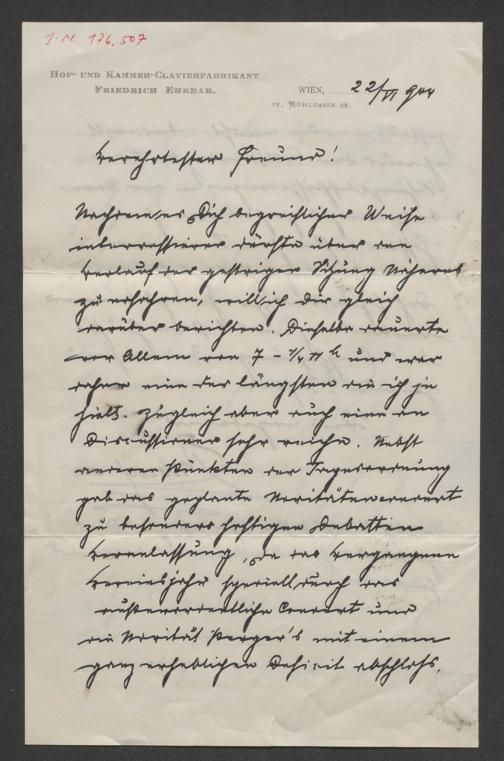 I. N. 176.507
HOF- UND KAMMER-CLAVIERFABRIKANT
FRIEDRICH EHRBAR.
WIEN, 22/VI 904
IV. MÜHLGASSE 28.
Verehrtester Freund!
Nachdem es Dich begreiflicher Weise
interessieren dürfte über den
Verlauf der gestrigen Sitzung Näheres
zu erfahren, will ich Dir gleich
darüber berichten. Dieselbe dauerte
vor Allem von 7 - ¼ 11 h und war
daher eine der längsten die ich je
hielt. Zugleich aber auch eine an
Discussionen sehr reiche. Nebst
anderen Punkten der Tagesordnung
gab das geplante Novitätenconcert
zu besonders heftigen Debatten
Veranlassung, da das vergangene
Vereinsjahr speciell durch das
außerordentliche Concert und
die Novität Perger's mit einem
ganz erheblichen Deficit abschloss.